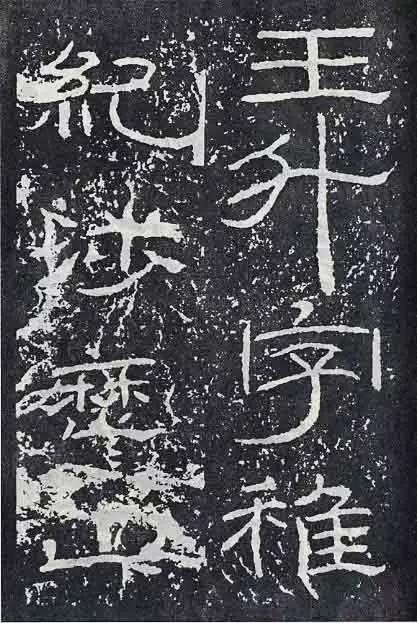 王升字稚
紀涉歷山